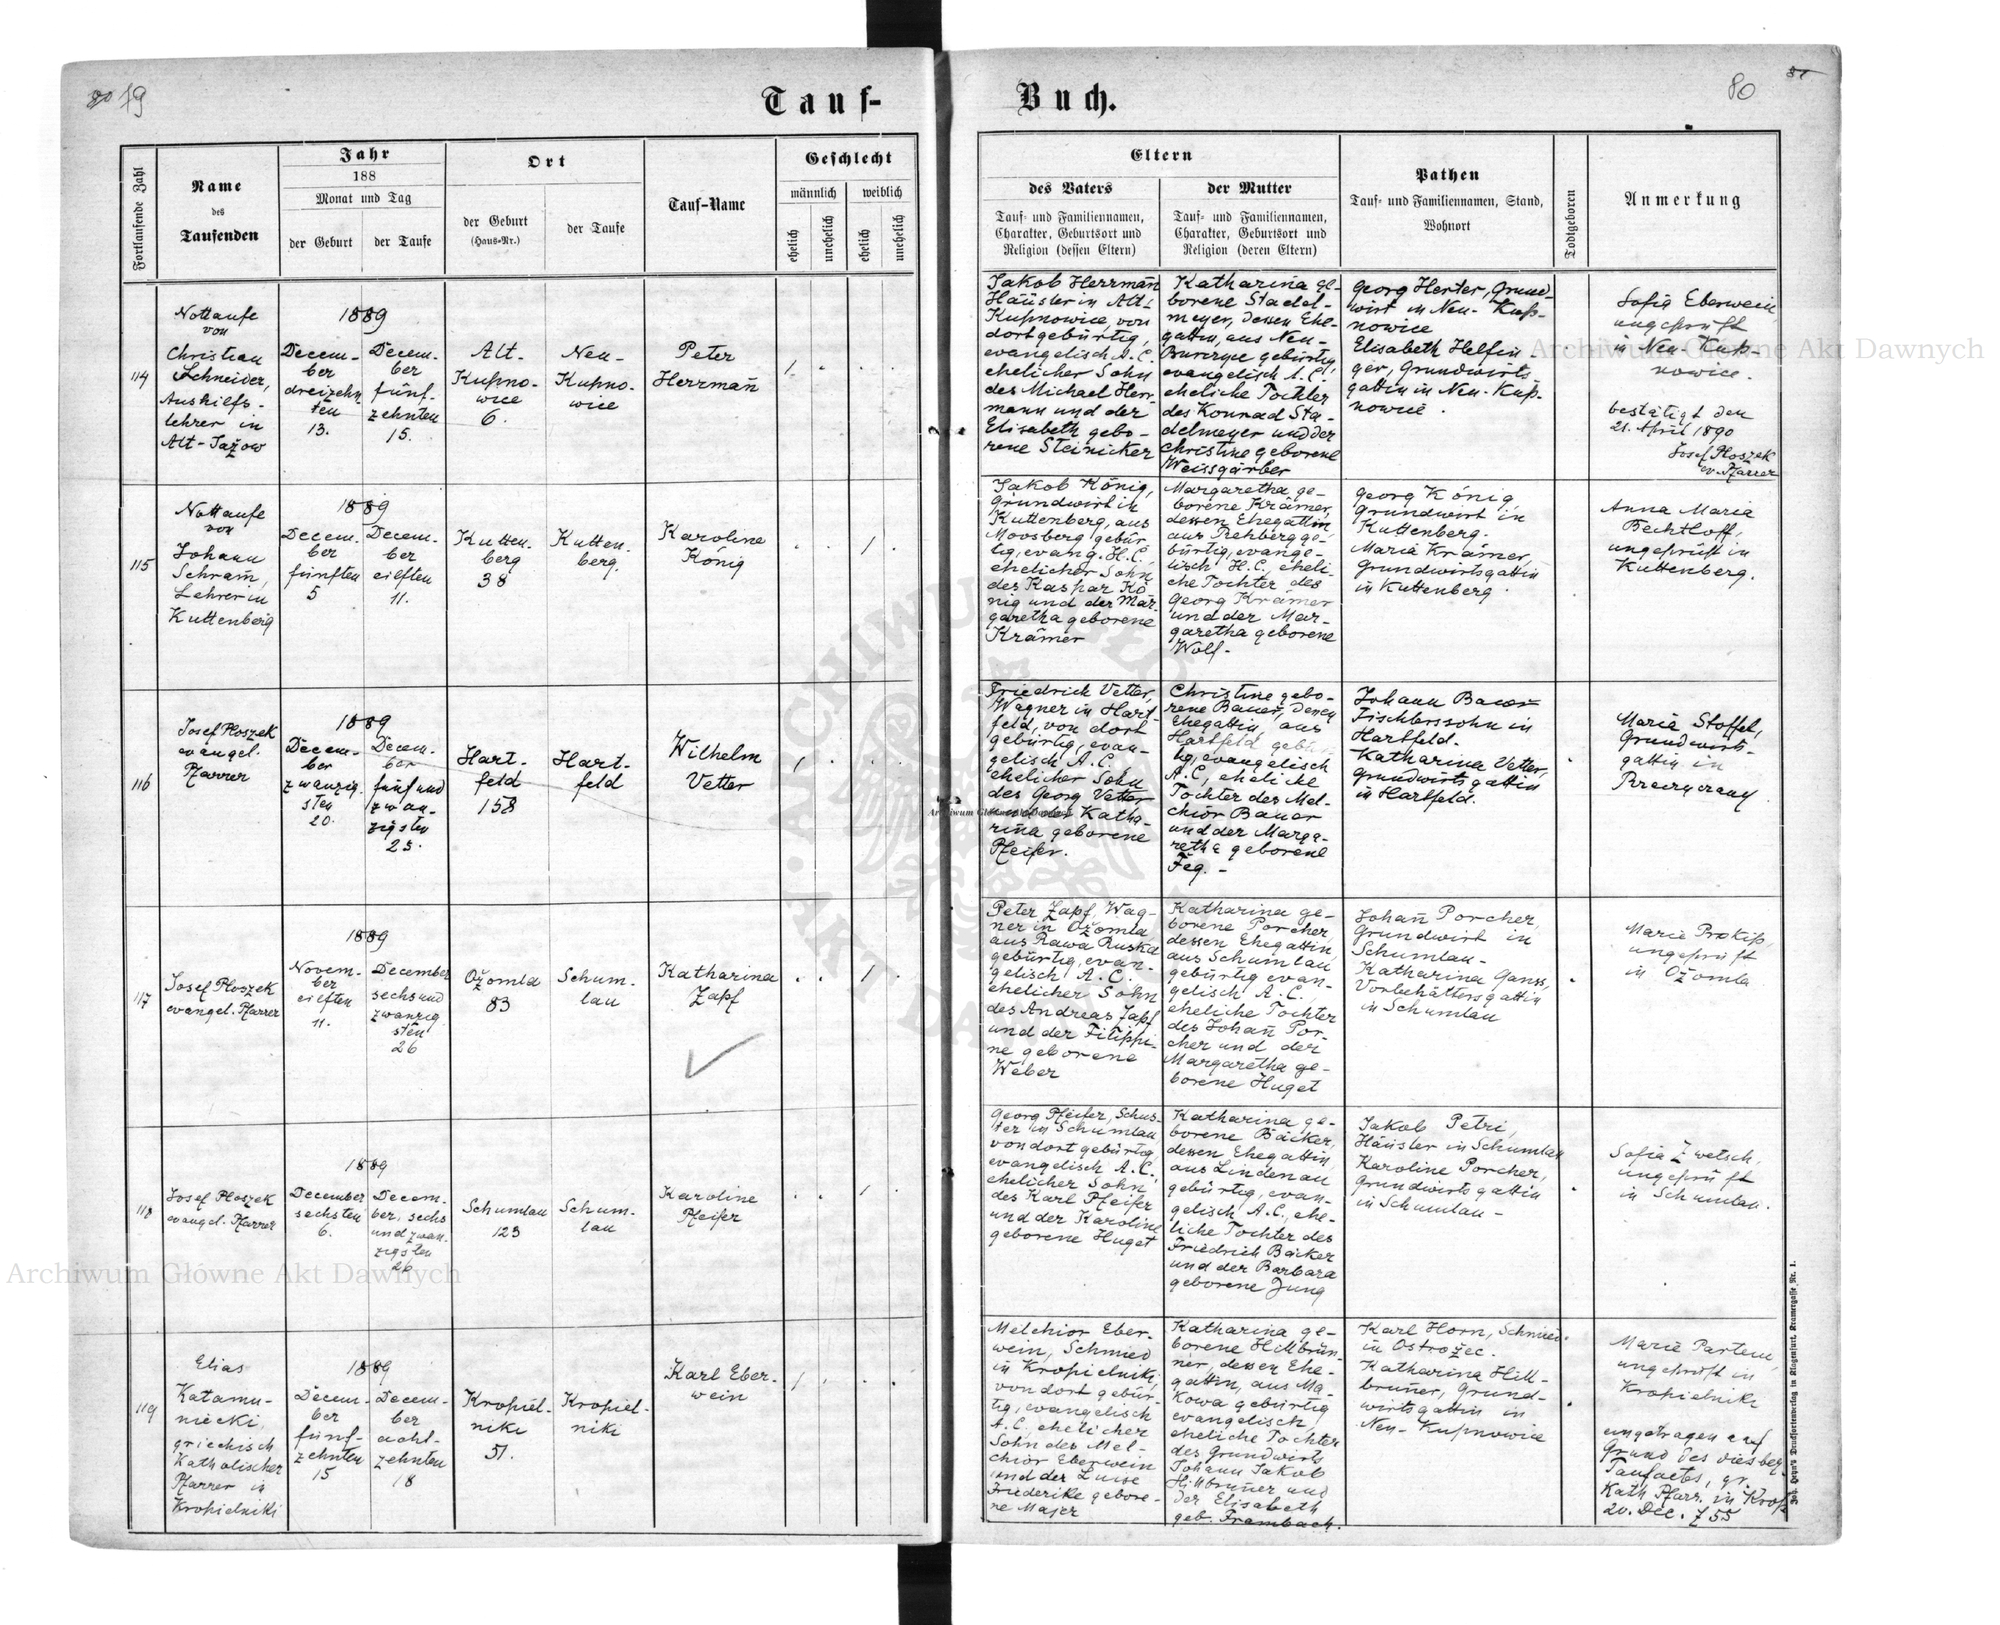 80 79
Tauf-
Buch.
80
81
Fortlaufende Zahl
Name
des
Taufenden
Jahr
188
Monat und Tag
der Geburt
der Taufe
Ort
der Geburt
(Haus-Nr.)
der Taufe
Tauf-Name
Geschlecht
männlich
weiblich
ehelich
unehelich
ehelich
unehelich
Eltern
des Vaters
Tauf- und Familiennamen,
Charakter, Geburtsort und
Religion (dessen Eltern)
der Mutter
Tauf- und Familiennamen,
Charakter, Geburtsort und
Religion (deren Eltern)
Pathen
Tauf- und Familiennamen, Stand,
Wohnort
Todtgeboren
Anmerkung
114
Nottaufe
von
Christian
Schneider,
Aushilfs-
lehrer in
Alt-Jażow
1889
Decem-
ber
dreizehn
ten
13.
Decem-
ber
fünf-
zehnten
15.
Alt-
Kupno-
wice
6.
Neu-
Kupno-
wice
Peter
Herrman̄
1
Jakob Herrman̄
Häusler in Alt-
Kupnowice, von
dort gebürtig,
evangelisch A.C.
ehelicher Sohn
des Michael Herr-
mann und der
Elisabeth gebo-
rene Steinicker
Katharina ge-
borene Stadel-
meyer, dessen Ehe-
gattin, aus Neu-
Burczyce gebürtig
evangelisch A.C.,
eheliche Tochter
des Konrad Sta-
delmeyer und der
Christine geborene
Weissgärber
Georg Herter, Grund-
wirt in Neu-Kup-
nowice
Elisabeth Helfin-
ger, Grundwirts
gattin in Neu-Kup-
nowice.
Sofia Eberwein
ungeprüft
in Neu-Kup-
nowice.
bestätigt den
21. April 1890
Josef Ploszek
ev. Pfarrer
115
Nottaufe
von
Johann
Schram̄,
Lehrer in
Kuttenberg
1889
Decem-
ber
fünften
5
Decem-
ber
eilften
11.
Kutten-
berg
38
Kutten-
berg.
Karoline
König
1
Jakob König,
Grundwirt in
Kuttenberg, aus
Moosberg gebür-
tig, evang. H.C.,
ehelicher Sohn
des Kaspar Kö-
nig und der Mar-
garetha geborene
Krämer
Margaretha ge-
borene Krämer,
dessen Ehegattin
aus Rehberg ge-
bürtig, evange-
lisch H.C., eheli-
che Tochter des
Georg Krämer
und der Mar-
garetha geborene
Wolf.
Georg König,
Grundwirt in
Kuttenberg.
Maria Krämer,
Grundwirtsgattin
in Kuttenberg.
Anna Maria
Bechtloff,
ungeprüft in
Kuttenberg.
116
Josef Ploszek
evangel.
Pfarrer
1889
Decem-
ber
zwanzig-
sten
20.
Decem-
ber
fünf und
zwan-
zigsten
25.
Hart-
feld
158
Hart-
feld
Wilhelm
Vetter
1
Friedrich Vetter,
Wagner in Hart-
feld, von dort
gebürtig, evan-
gelisch A.C.
ehelicher Sohn
des Georg Vetter
und der Katha-
rina geborene
Pfeifer.
Christine gebo-
rene Bauer, dessen
Ehegattin, aus
Hartfeld gebür-
tig, evangelisch
A.C., eheliche
Tochter des Mel-
chior Bauer
und der Marga-
retha geborene
Feg. -
Johann Bauer
Tischlerssohn in
Hartfeld.
Katharina Vetter,
Grundwirtsgattin
in Hartfeld.
Maria Stoffel,
Grundwirts-
gattin in
117
Josef Ploszek
evangel. Pfarrer
1889
Novem-
ber
eilften
11.
December
sechs und
zwanzig
sten
26
Ożomla
83
Schum-
lau
Katharina
Zapf
1
Peter Zapf, Wag-
ner in Ożomla
aus Rawa Ruska
gebürtig, evan-
gelisch A.C.
ehelicher Sohn
des Andreas Zapf
und der Filippi-
ne geborene
Weber
Katharina ge-
borene Porcher,
dessen Ehegattin
aus Schumlau
gebürtig evan-
gelisch A.C.,
eheliche Tochter
des Johan̄ Por-
cher und der
Margaretha ge-
borene Huget
Johan̄ Porcher,
Grundwirt in
Schumlau-
Katharina Ganss,
Vorbehältersgattin
in Schumlau
Marie Prokiß,
ungeprüft
in Ożomla
118
Josef Ploszek
evangel. Pfarrer
1889
December
sechsten
6.
Decem-
ber, sechs
und zwan-
zigsten
26
Schumlau
123
Schum-
lau
Karoline
Pfeifer
1
Georg Pfeifer, Schus-
ter in Schumlau
von dort gebürtig,
evangelisch A.C.,
ehelicher Sohn
des Karl Pfeifer
und der Karoline
geborene Huget
Katharina ge-
borene Bäcker,
dessen Ehegattin,
aus Lindenau
gebürtig, evan-
gelisch A.C., ehe-
liche Tochter des
Friedrich Bäcker
und der Barbara
geborene Jung
Jakob Petri,
Häusler in Schumlau
Karoline Porcher,
Grundwirtsgattin
in Schumlau-
Sofia Zwetsch,
ungeprüft
in Schumlau.
119
Elias
Katamu-
niecki,
griechisch
Katholischer
Pfarrer in
Kropielniki
1889
Decem-
ber
fünf-
zehnten
15
Decem-
ber
acht-
zehnten
18
Kropiel-
niki
51.
Kropiel-
niki
Karl Eber-
wein
1
Melchior Eber-
wein, Schmied
in Kropielniki,
von dort gebür-
tig, evangelisch
A.C., ehelicher
Sohn des Mel-
chior Eberwein
und der Luise
Friederike gebore-
ne Majer
Katharina ge-
borene Hillbrun̄-
ner, dessen Ehe-
gattin, aus Ma-
kowa gebürtig
evangelisch,
eheliche Tochter
des Grundwirts
Johann Jakob
Hillbrun̄er und
der Elisabeth
geb. Frambach.
Karl Horn, Schmied
in Ostrożec.
Katharina Hill-
brun̄er, Grund-
wirtsgattin in
Neu-Kupnowice
Marie Partem,
ungeprüft in
Kropielniki
eingetragen auf
Grund des diesbez.
Taufactes, gr.
Kath. Pfarr. in Krop.
20. Dec. Z 55
Joh. Heyn's Drucksortenverlag in Klagenfurt, Kramergasse Nr. 1.
Archiwum Główne Akt Dawnych
Archiwum Główne Akt Dawnych
Archiwum Główne Akt Dawnych